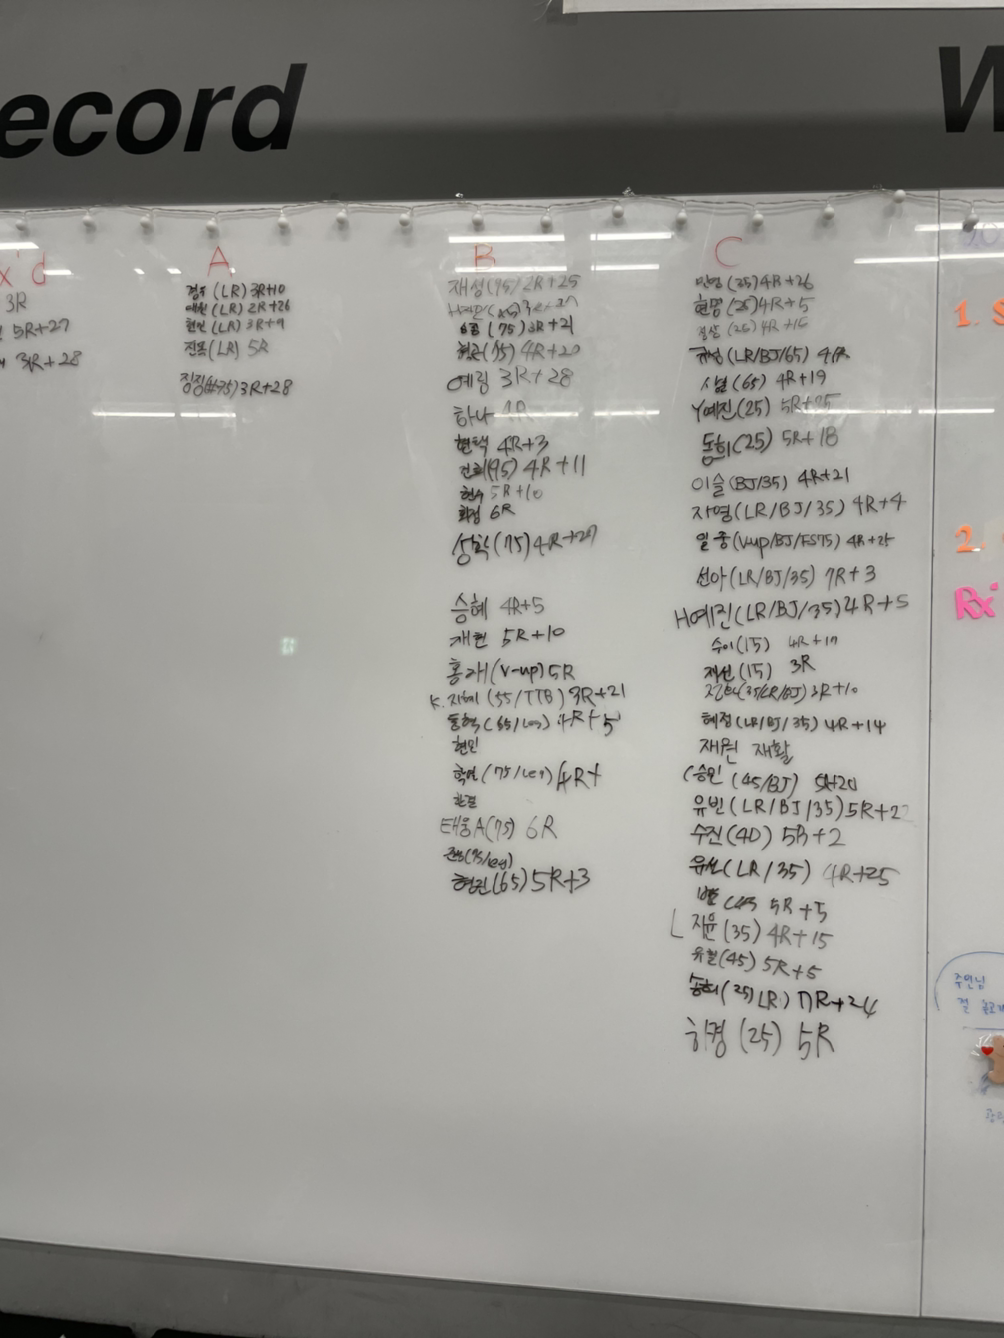 ecord
W
x'd
3R
5R+27
3R+28
A
(LR) 3R+10
(LR) 2R+26
현인 (LR) 3R+9
(LR) 5R
징징 3R+28
B
재성(95) 2R+25
(75) 3R+21
(75) 4R+20
예림 3R+28
하나 4R
현택 4R+3
(95) 4R+11
현수 5R+10
화정 6R
상학 (75) 4R+27
승혜 4R+5
재현 5R+10
홍래 (V-up) 5R
K.지혜 (55/TTB) 3R+21
동혁 (65/Leg) 4R+5
현민
학연 (75/Leg) 4R+
한결
태웅A(75) 6R
(75/Leg)
형진 (65) 5R+3
C
민영 (35) 4R+26
현명 (25) 4R+5
(25) 4R+15
규성 (LR/BJ/65) 4R
(65) 4R+19
Y예진 (25) 5R+25
동희 (25) 5R+18
이슬 (BJ/35) 4R+21
자영 (LR/BJ/35) 4R+4
일중 (Vup/BJ/FS75) 4R+25
선아 (LR/BJ/35) 7R+3
H예진 (LR/BJ/35) 4R+5
수이 (15) 4R+17
재선 (15) 3R
(35/LR/BJ) 3R+10
혜정 (LR/BJ/35) 4R+14
재원 재활
승민 (45/BJ) 5R+20
유빈 (LR/BJ/35) 5R+22
수진 (40) 5R+2
(LR/35) 4R+25
5R+5
L 지윤 (35) 4R+15
유철 (45) 5R+5
승희 (25) LR) 7R+24
하경 (25) 5R
1. S
2.
Rx
주인님